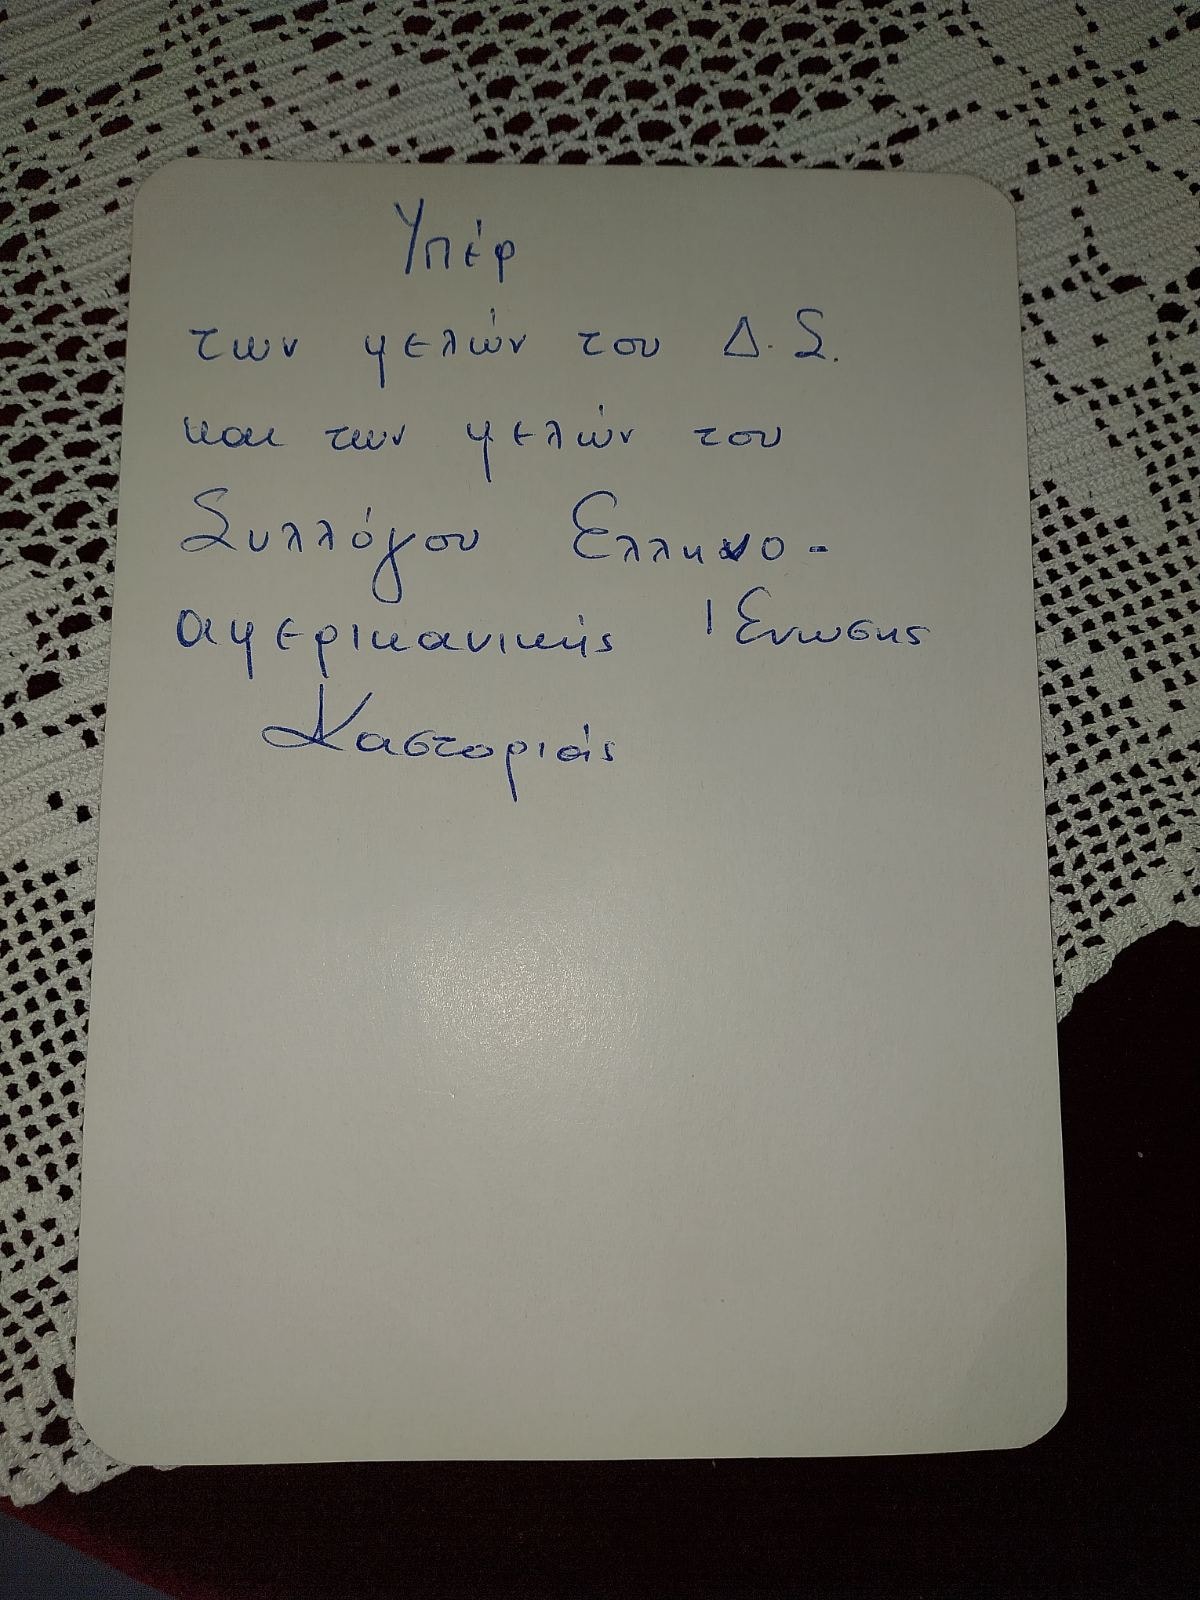 Υπέρ
των μελών του Δ.Σ.
και των μελών του
Συλλόγου Ελληνο-
αμερικανικής Ένωσης
Καστοριάς